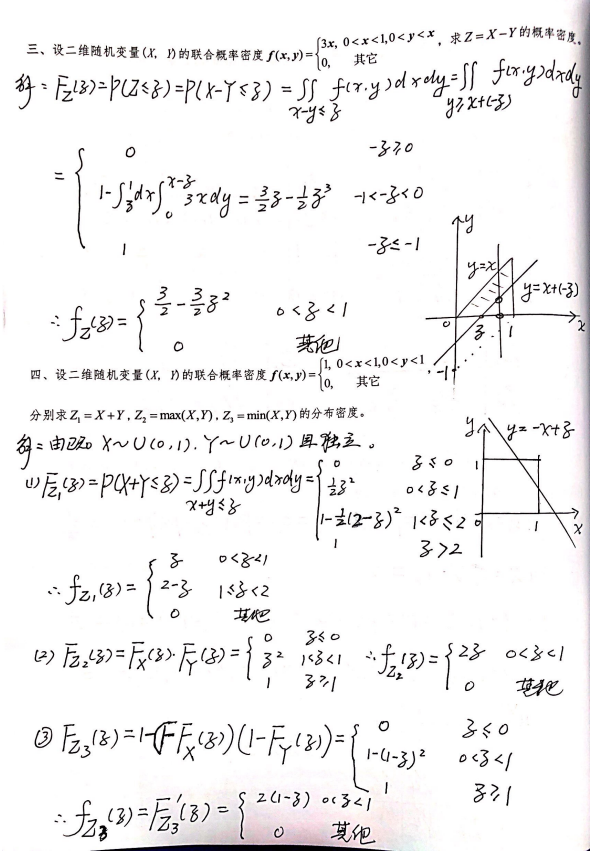 三、设二维随机变量(X, Y)的联合概率密度 f(x,y)={3x, 0<x<1,0<y<x, 求 Z=X-Y 的概率密度。
0, 其它
解: F_Z(z)=P(Z≤z)=P(X-Y≤z)=∬_{x-y≤z} f(x,y)dxdy=∬_{y≥x+(-z)} f(x,y)dxdy
= { 0 -z≥0
1-∫_z^1 dx∫_0^{x-z} 3xdy = 3/2 z - 1/2 z³ -1<-z<0
1 -z≤-1
y
y=x
y=x+(-z)
0 z 1 x
-1
∴ f_Z(z)= { 3/2 - 3/2 z² 0<z<1
0 其他
四、设二维随机变量(X, Y)的联合概率密度 f(x,y)={1, 0<x<1,0<y<1,
0, 其它
分别求 Z₁=X+Y, Z₂=max(X,Y), Z₃=min(X,Y) 的分布密度。
解: 由已知 X~U(0,1). Y~U(0,1) 且独立。
y y=-x+z
1
0 1 x
(1) F_{Z₁}(z)=P(X+Y≤z)=∬_{x+y≤z} f(x,y)dxdy= { 0 z≤0
1/2 z² 0<z≤1
1-1/2(2-z)² 1<z≤2
1 z>2
∴ f_{Z₁}(z)= { z 0<z<1
2-z 1≤z<2
0 其他
(2) F_{Z₂}(z)=F_X(z)·F_Y(z)= { 0 z≤0
z² 1<z<1
1 z≥1
∴ f_{Z₂}(z)= { 2z 0<z<1
0 其他
③ F_{Z₃}(z)=1-(1-F_X(z))(1-F_Y(z))= { 0 z≤0
1-(1-z)² 0<z<1
1 z≥1
∴ f_{Z₃}(z)=F'_{Z₃}(z)= { 2(1-z) 0<z<1
0 其他